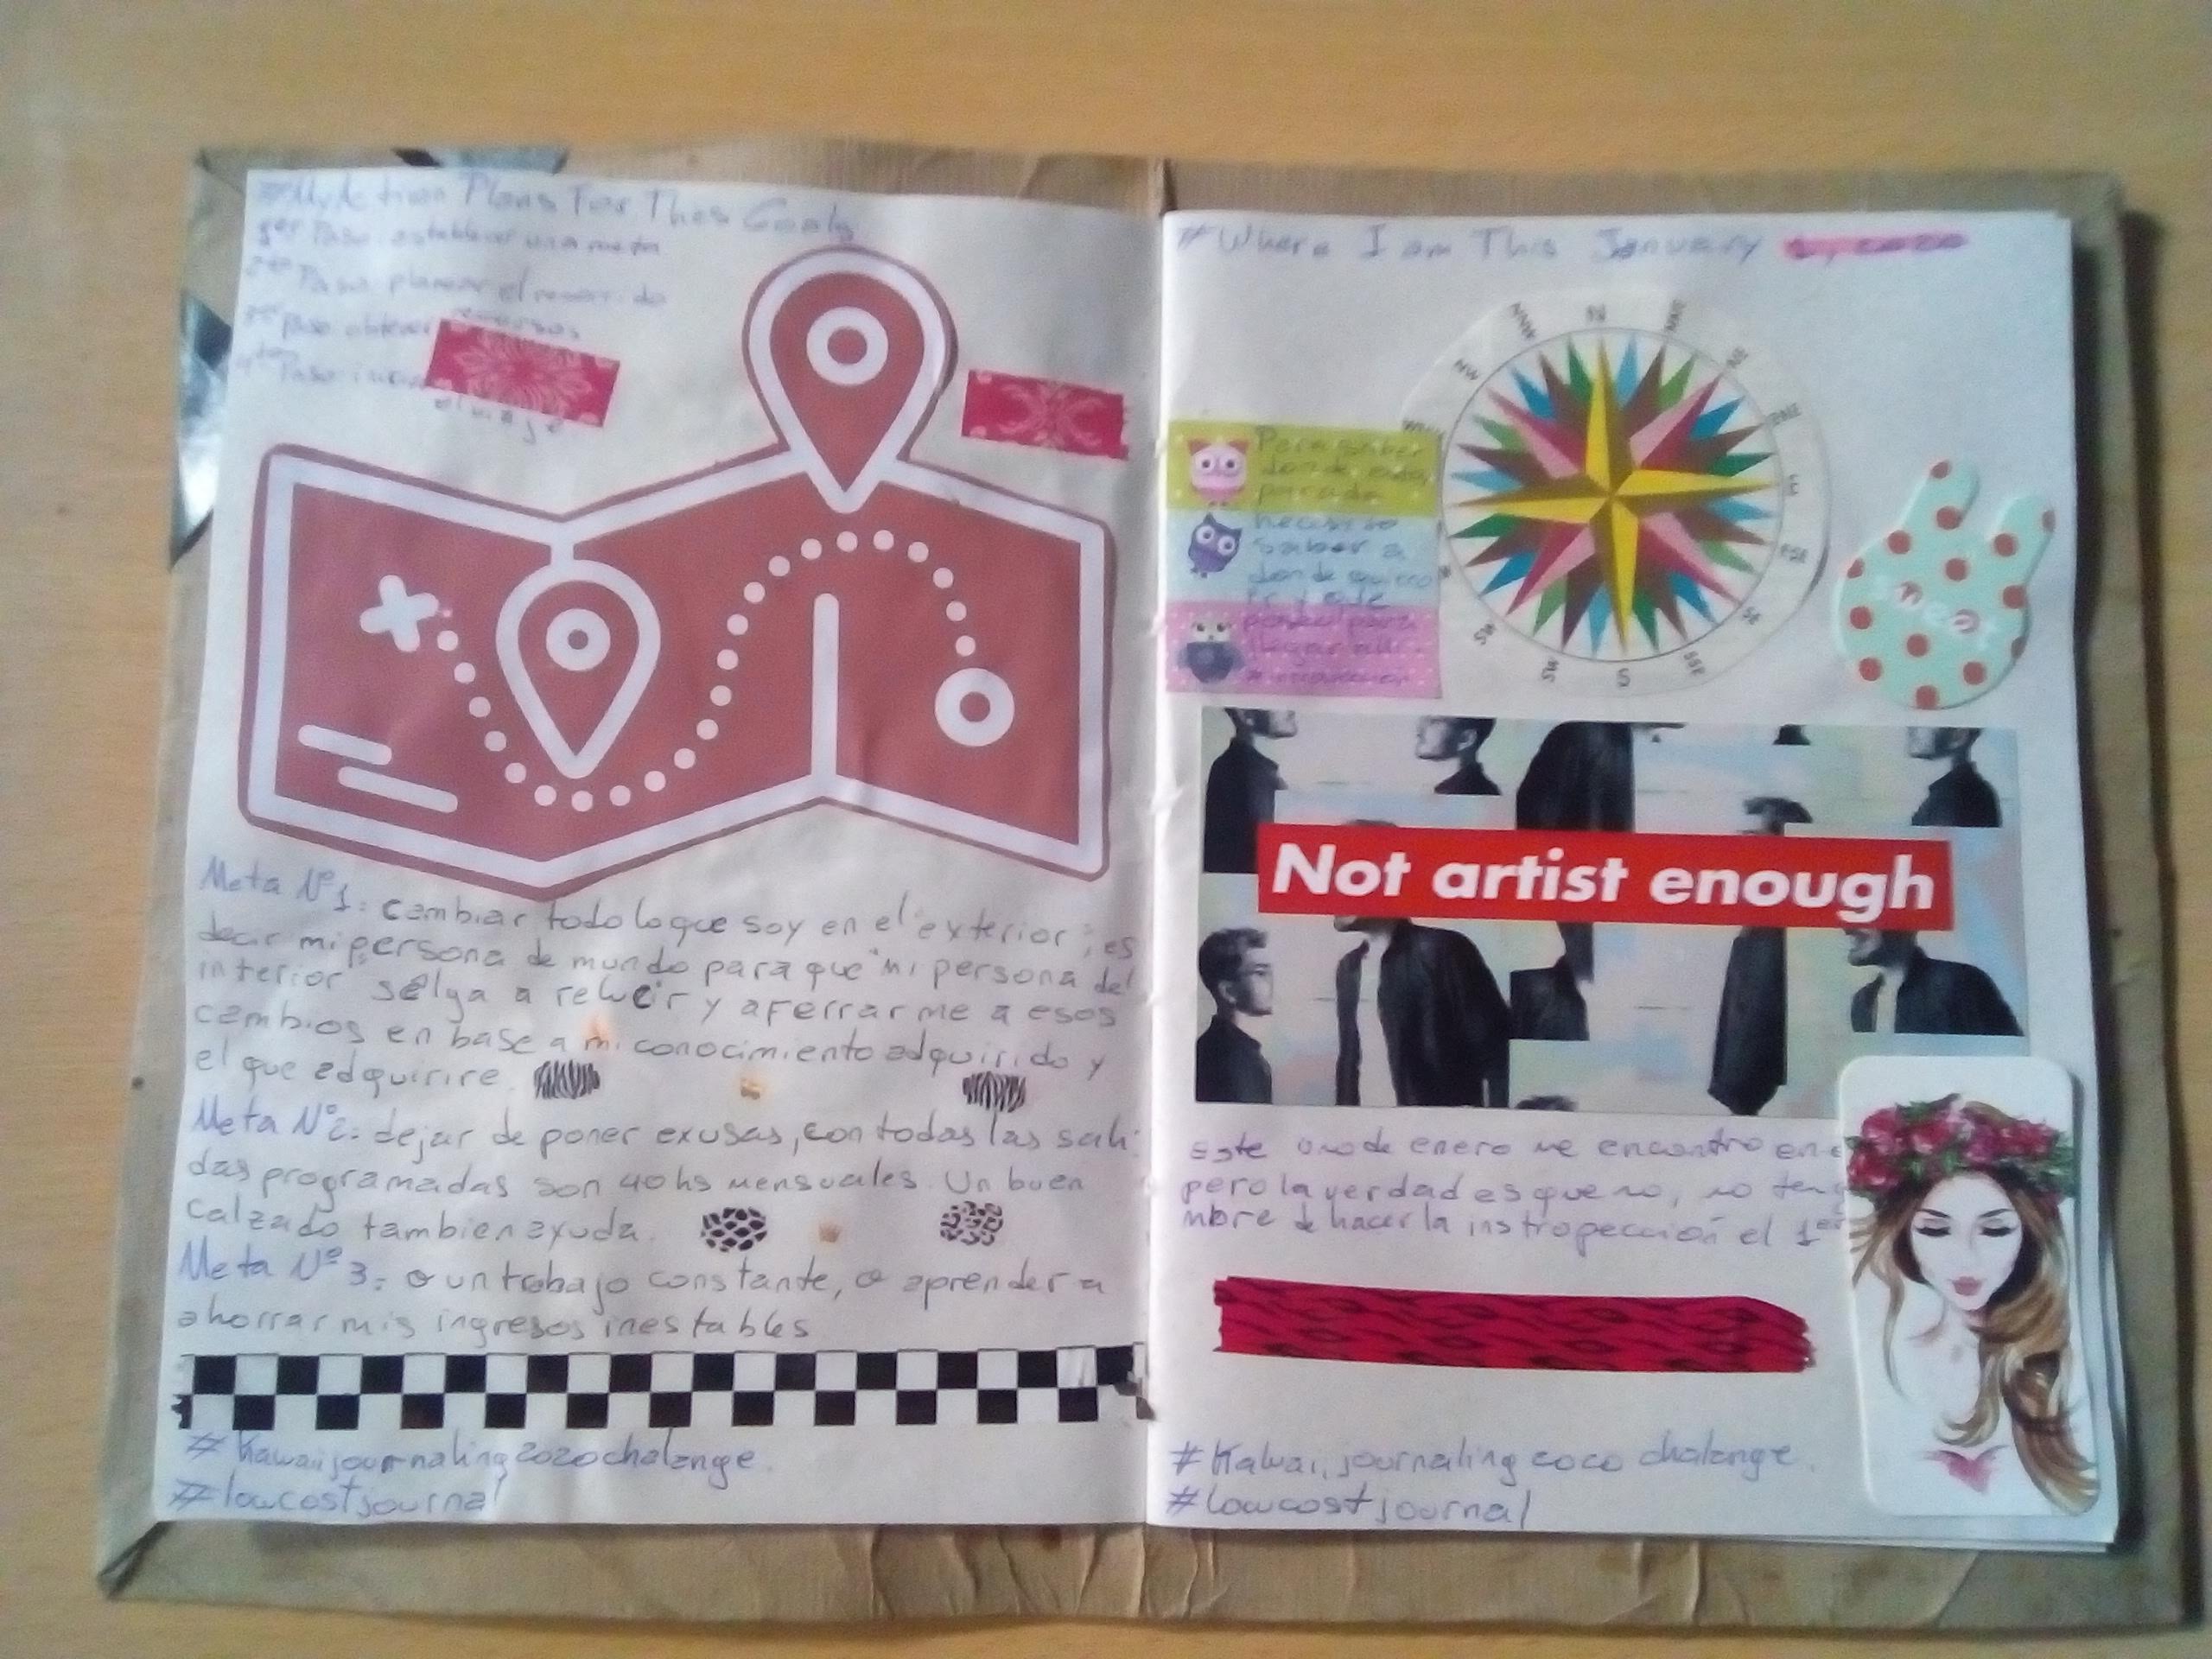 #My Action Plans For Thes Goals
1er Paso: establecer una meta
2do Paso planear el recorrido
3er paso obtener recursos
4to Paso: iniciar
el viaje
Meta Nº1: cambiar todo lo que soy en el "exterior", es
decir mi persona de mundo para que "mi persona del
interior" salga a relucir y aferrarme a esos
cambios en base a mi conocimiento adquirido y
el que adquirire.
Meta Nº2: dejar de poner exusas, con todas las sali-
das programadas son 40hs mensuales. Un buen
calzado tambien ayuda.
Meta Nº 3: o un trabajo constante, o aprender a
ahorrar mis ingresos inestables
# Kawaiijournaling2020chalenge.
#lowcostjournal
#Where I am This January
N
NNE
NE
ENE
E
ESE
SE
SSE
S
SW
NW
NNW
Para saber
donde estoy
parada
necesito
saber a
donde quiero
ir y este
para
llegar alli.
sweet
Not artist enough
Este uno de enero me encontro en
pero la verdad es que no, no
mbre de hacer la instropección el 1er
# Kawaiijournaling 2020 chalenge.
#lowcostjournal